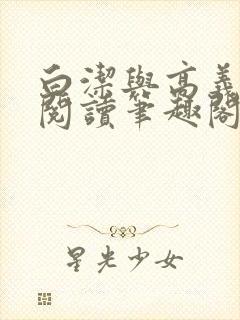 白潔與高義
閱讀筆趣閣
星光少女